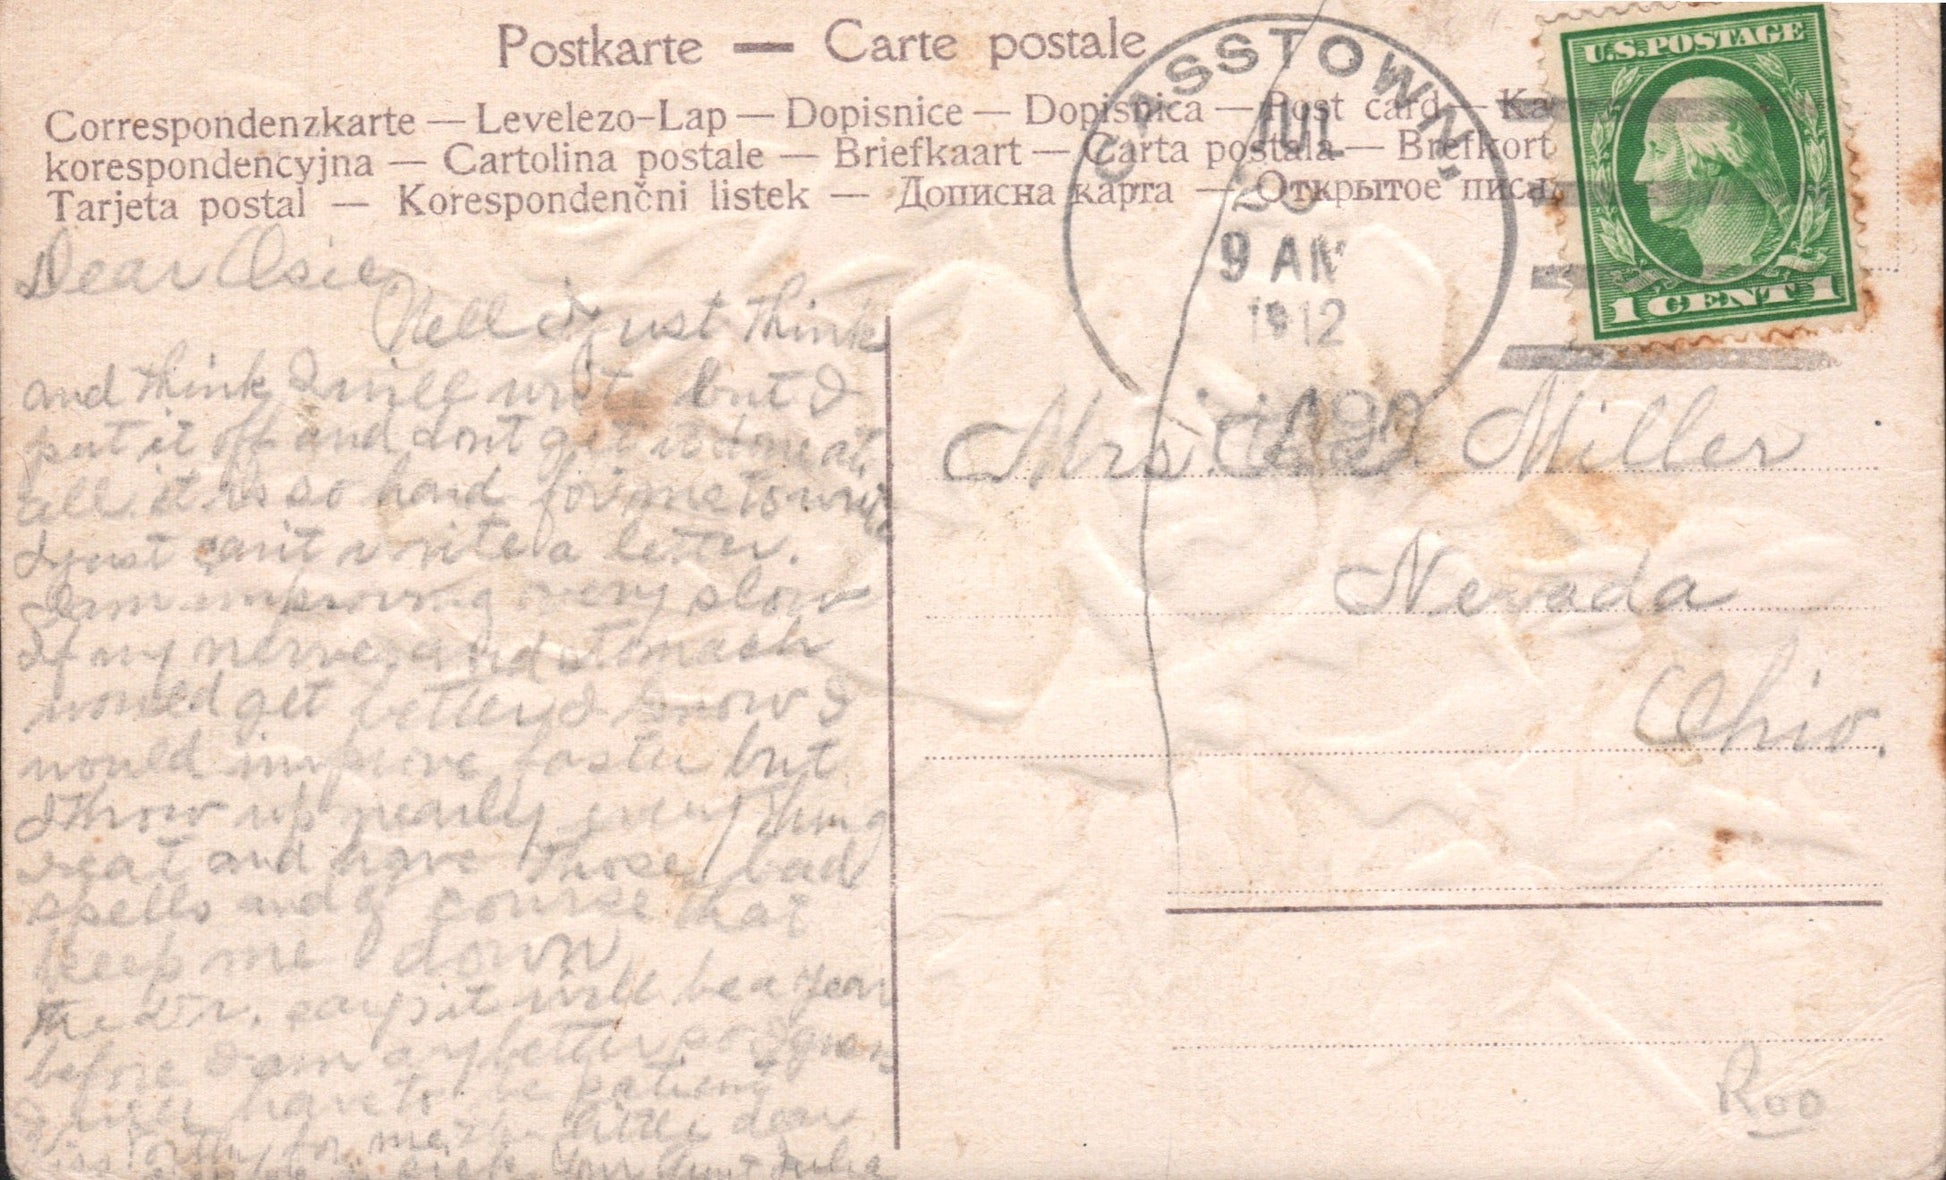 Postkarte — Carte postale
Correspondenzkarte — Levelezo-Lap — Dopisnice — Dopisnica — Post card — Ka
korespondencyjna — Cartolina postale — Briefkaart — Carta postala — Brefkort
Tarjeta postal — Korespondenčni listek — Дописна карта — Открытое писа
CASSTOWN,
JUL
9 AM
1912
U.S. POSTAGE
1 CENT 1
Dear Osie
Well I just think
and think I will write but I
put it off and dont get it done at
all it is so hard for me to write
I just can't write a letter.
I am improving very slow
If my nerves and stomach
would get better I know I
would improve faster but
I throw up nearly every thing
I eat and have those bad
spells and of course that
keep me down
the Dr. says it will be a year
before I am any better so I guess
I will have to be patient
for me little dear
Your Aunt Julia
Mrs. Miller
Nevada
Ohio.
Roo